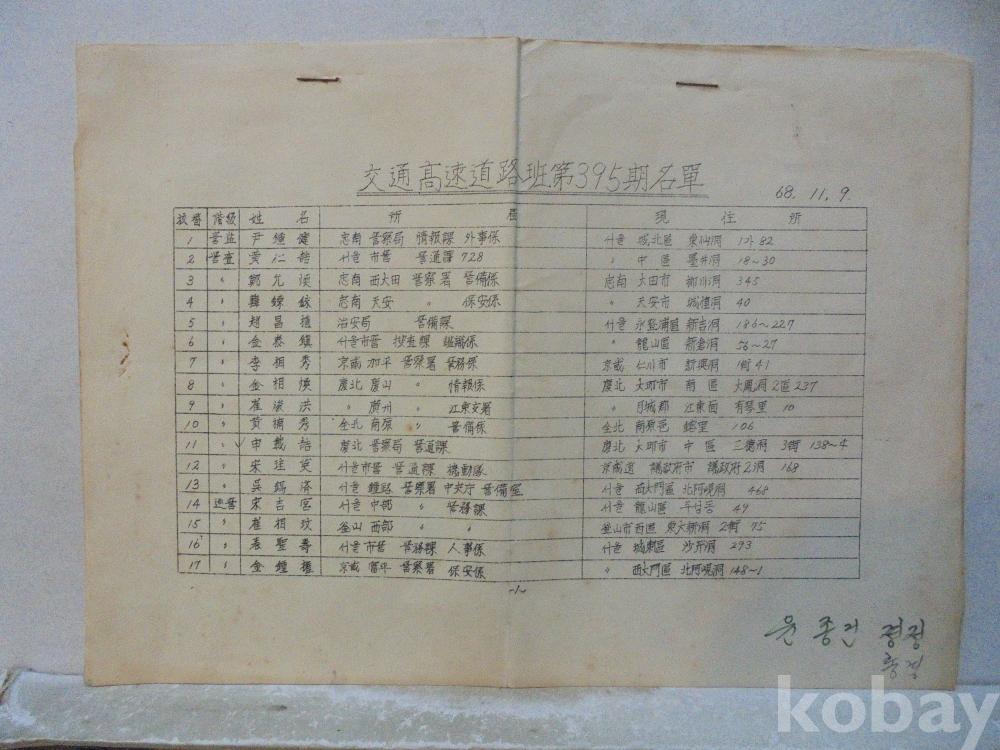 交通高速道路班第395期名單
68. 11. 9.
校番 階級 姓 名 所 屬 現 住 所
1 警監 尹鍾健 忠南 警察局 情報課 外事係 서울 城北區 東仙洞 1가 82
2 警査 黃仁 서울 市警 警通課 728 〃 中區 墨井洞 18~30
3 〃 鄭允 忠南 西大田 警察署 警備係 忠南 大田市 洞 345
4 〃 韓 忠南 天安 〃 保安係 〃 天安市 城 洞 40
5 〃 趙昌 治安局 警備課 서울 永登浦區 新吉洞 186~227
6 〃 金泰鎭 서울市警 搜査課 鑑識係 〃 龍山區 新倉洞 56~27
7 〃 李相秀 京畿 加平 警察署 警務係 京畿 仁川市 新興洞 1街 41
8 〃 金相 慶北 慶山 〃 情報係 慶北 大邱市 南區 大鳳洞 2區 237
9 〃 崔 洪 〃 慶州 〃 江東支署 〃 月城郡 江東面 有琴里 10
10 〃 黃 秀 全北 南原 〃 警備係 全北 南原邑 里 106
11 〃 申載 慶北 警察局 警通課 慶北 大邱市 中區 三德洞 3街 138~4
12 〃 宋 서울市警 警通課 機動隊 京畿道 議政府市 議政府2洞 168
13 〃 吳錫 서울 鍾路 警察署 中央庁 警備室 서울 西大門區 北阿峴洞 468
14 巡警 宋吉宮 서울 中部 〃 警務課 서울 龍山區 동 49
15 〃 崔相 釜山 西部 〃 〃 釜山市 西區 東大新洞 2街 75
16 〃 表聖壽 서울市警 警務課 人事係 서울 城東區 沙斤洞 293
17 〃 金鍾 京畿 富平 警察署 保安係 〃 西大門區 北阿峴洞 148~1
-1-
윤종건 경정
총경
kobay